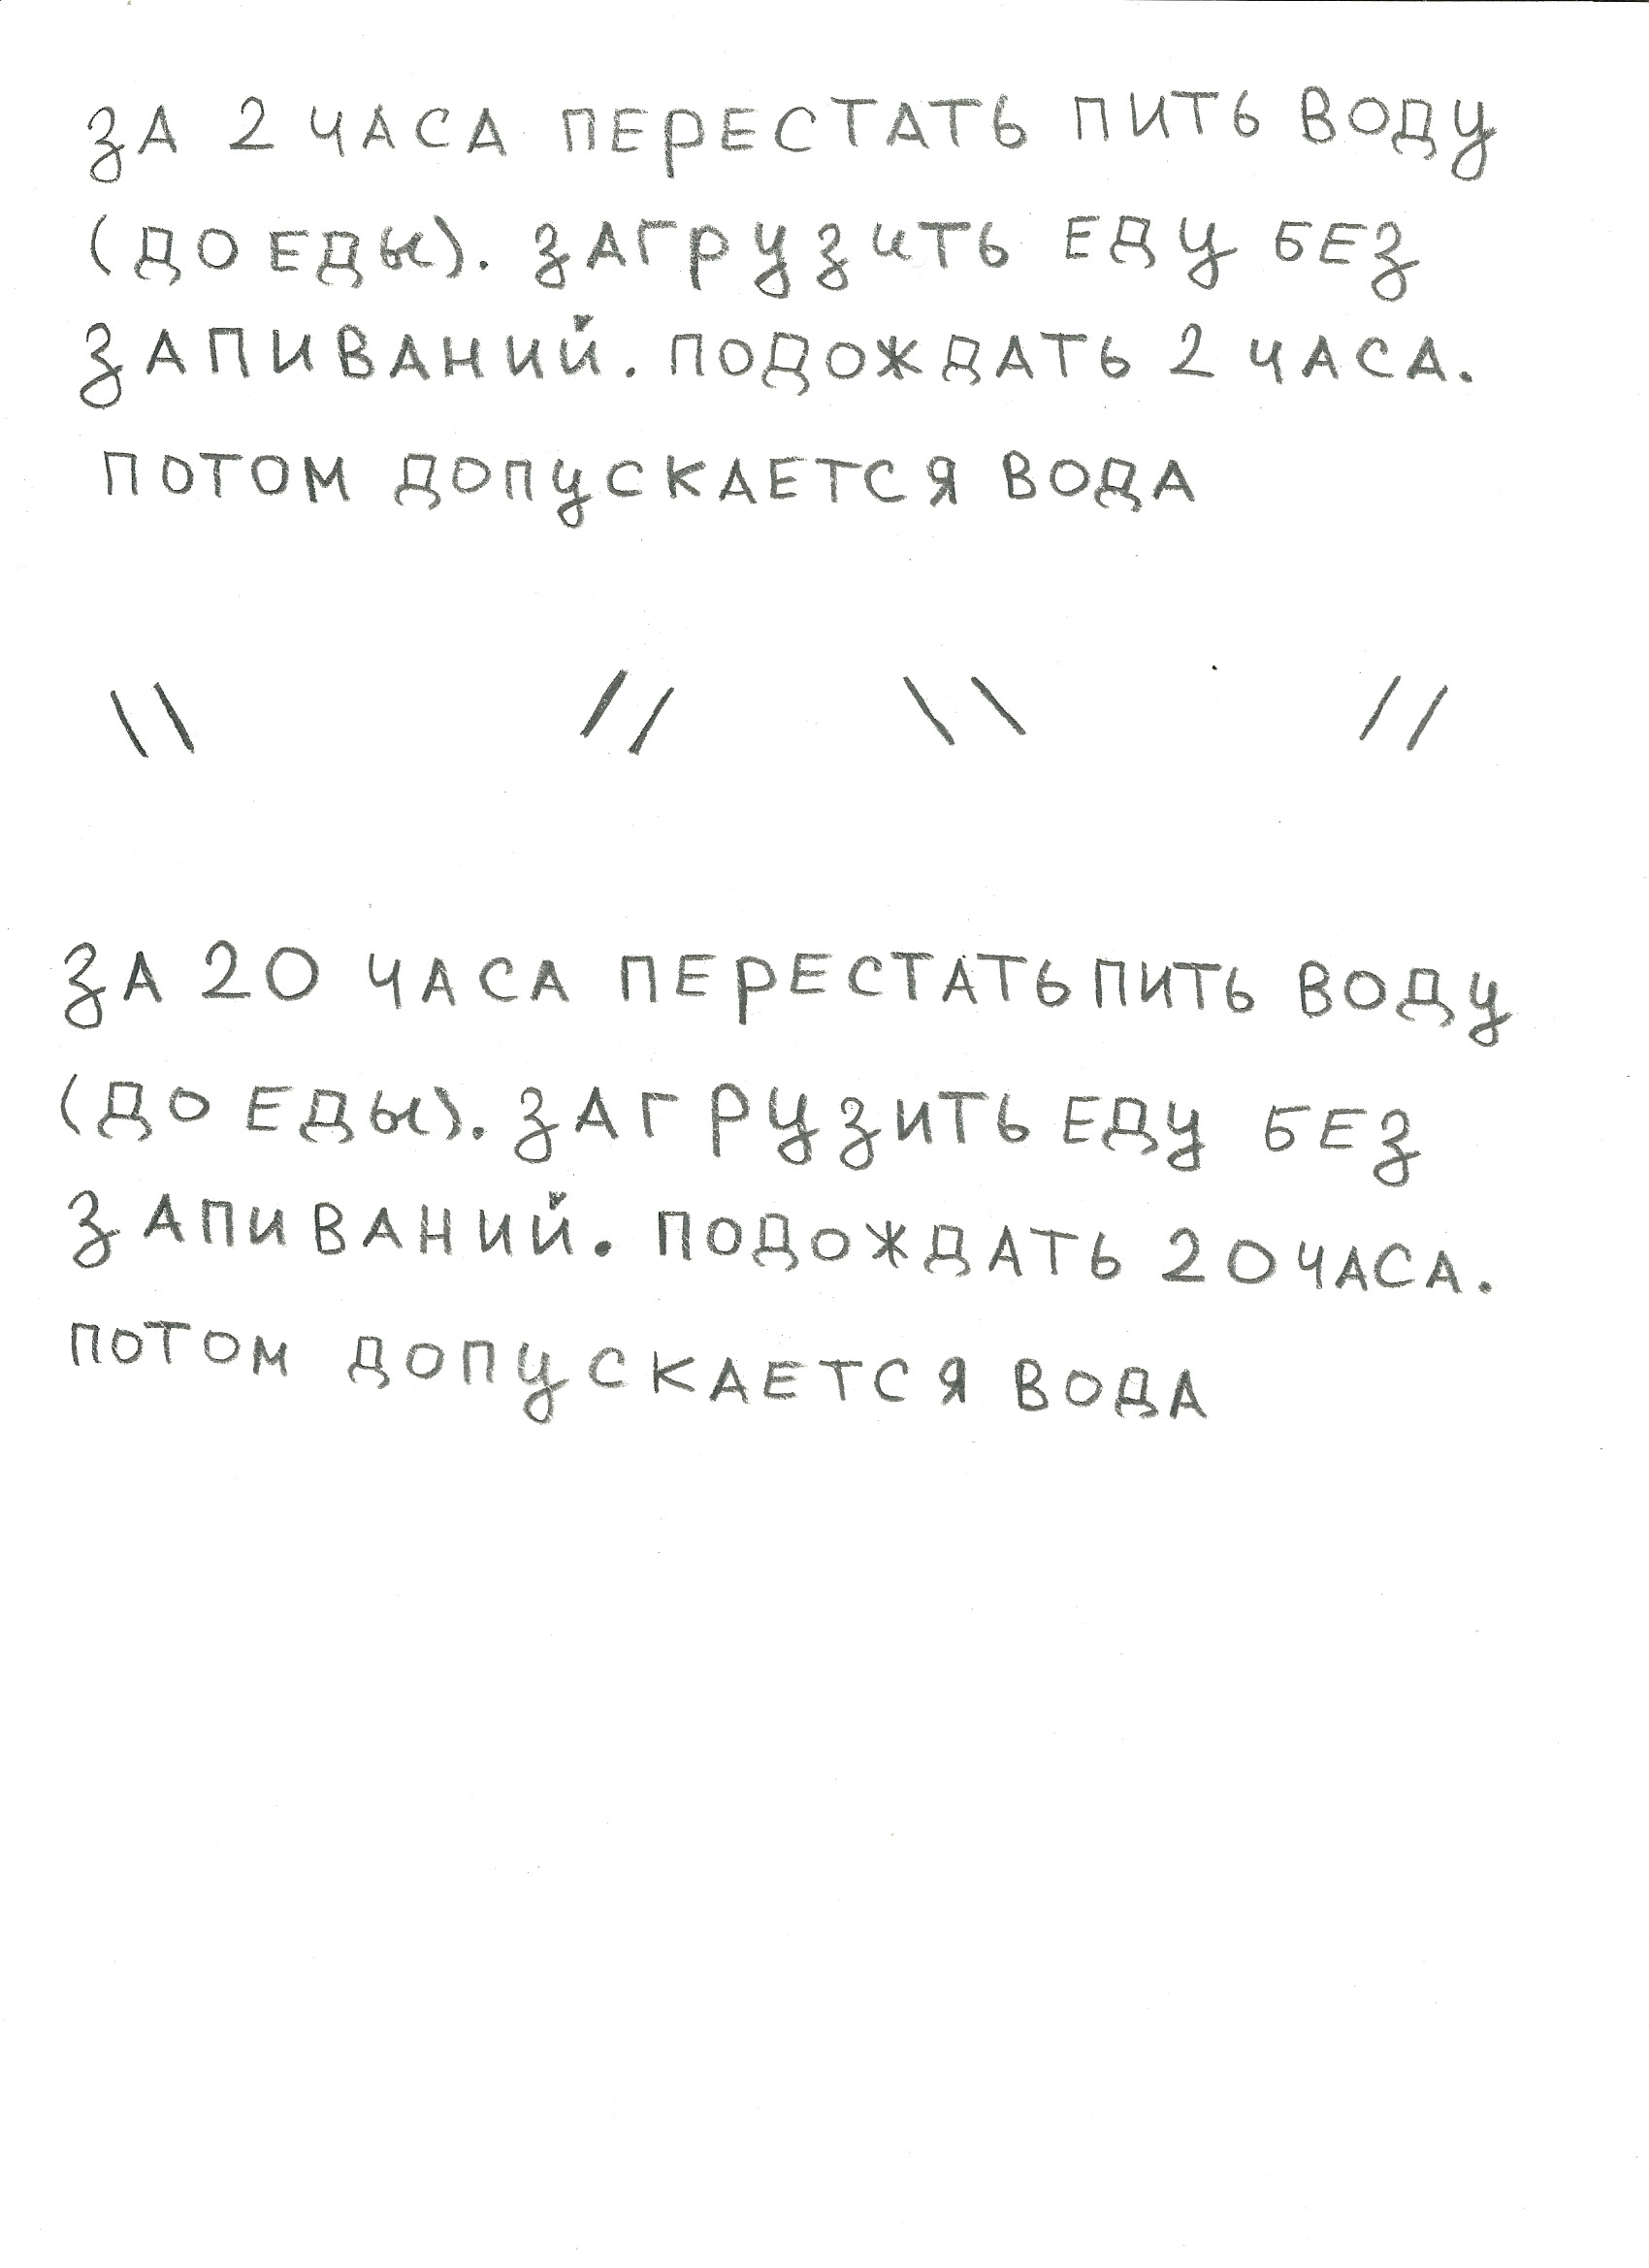 ЗА 2 ЧАСА ПЕРЕСТАТЬ ПИТЬ ВОДУ
(ДО ЕДЫ). ЗАГРУЗИТЬ ЕДУ БЕЗ
ЗАПИВАНИЙ. ПОДОЖДАТЬ 2 ЧАСА.
ПОТОМ ДОПУСКАЕТСЯ ВОДА
\\ // \\ //
ЗА 20 ЧАСА ПЕРЕСТАТЬ ПИТЬ ВОДУ
(ДО ЕДЫ). ЗАГРУЗИТЬ ЕДУ БЕЗ
ЗАПИВАНИЙ. ПОДОЖДАТЬ 20 ЧАСА.
ПОТОМ ДОПУСКАЕТСЯ ВОДА